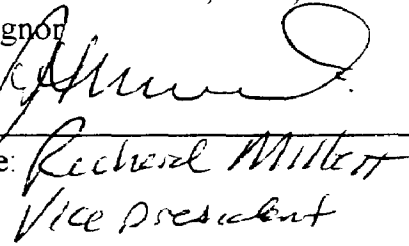 gnor
e: Richard Millett
Vice President